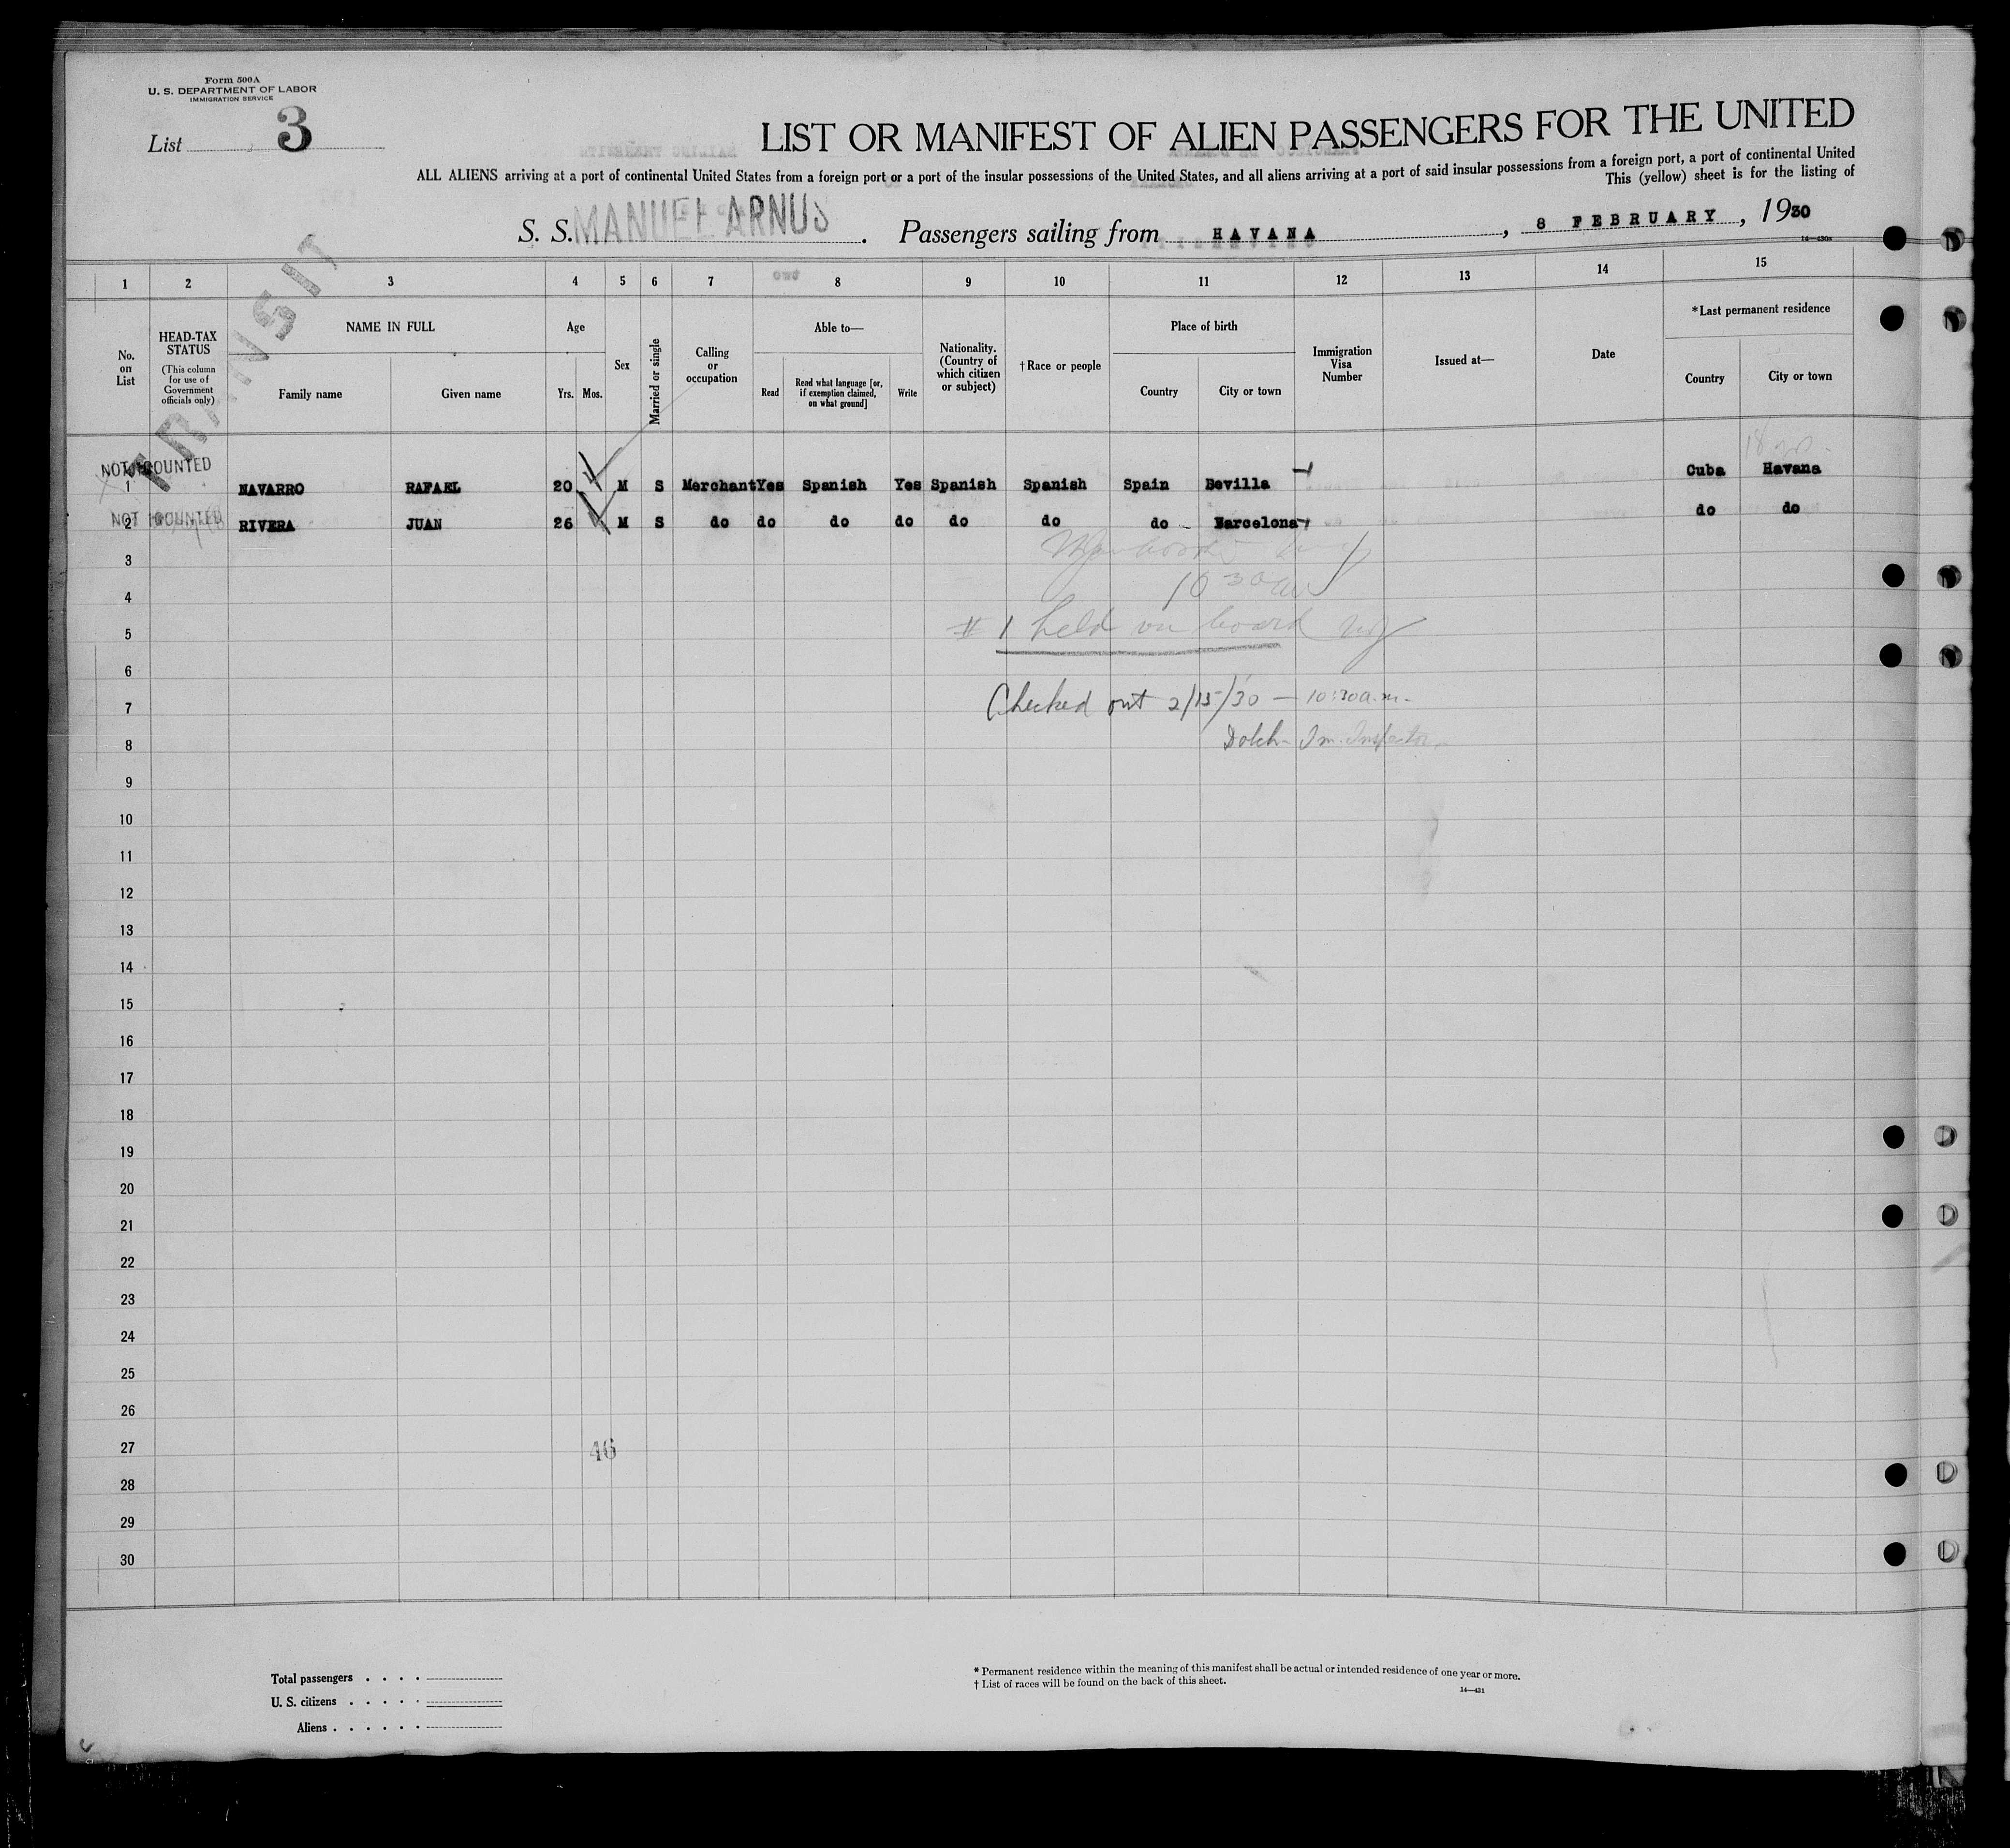 Form 500A
U. S. DEPARTMENT OF LABOR
IMMIGRATION SERVICE
List 3
LIST OR MANIFEST OF ALIEN PASSENGERS FOR THE UNITED
ALL ALIENS arriving at a port of continental United States from a foreign port or a port of the insular possessions of the United States, and all aliens arriving at a port of said insular possessions from a foreign port, a port of continental United
This (yellow) sheet is for the listing of
S. S. MANUEL ARNUS. Passengers sailing from HAVANA, 8 FEBRUARY, 1930
TRANSIT
1 2 3 4 5 6 7 8 9 10 11 12 13 14 15
No. on List
HEAD-TAX STATUS (This column for use of Government officials only)
NAME IN FULL
Family name Given name
Age
Yrs. Mos.
Sex
Married or single
Calling or occupation
Able to—
Read Read what language [or, if exemption claimed, on what ground] Write
Nationality. (Country of which citizen or subject)
†Race or people
Place of birth
Country City or town
Immigration Visa Number
Issued at—
Date
*Last permanent residence
Country City or town
NOT COUNTED
1 NAVARRO RAFAEL 20 M S Merchant Yes Spanish Yes Spanish Spanish Spain Sevilla Cuba Havana
NOT COUNTED
2 RIVERA JUAN 26 M S do do do do do do do Barcelona do do
3
10 30 am
4
# 1 held on board
5
6
Checked out 2/15/30 — 10:30 a.m.
7
Dolch Im. Inspector
8
9
10
11
12
13
14
15
16
17
18
19
20
21
22
23
24
25
26
27 46
28
29
30
Total passengers . . . .
U. S. citizens . . . . .
Aliens . . . . . .
* Permanent residence within the meaning of this manifest shall be actual or intended residence of one year or more.
† List of races will be found on the back of this sheet.
14—431